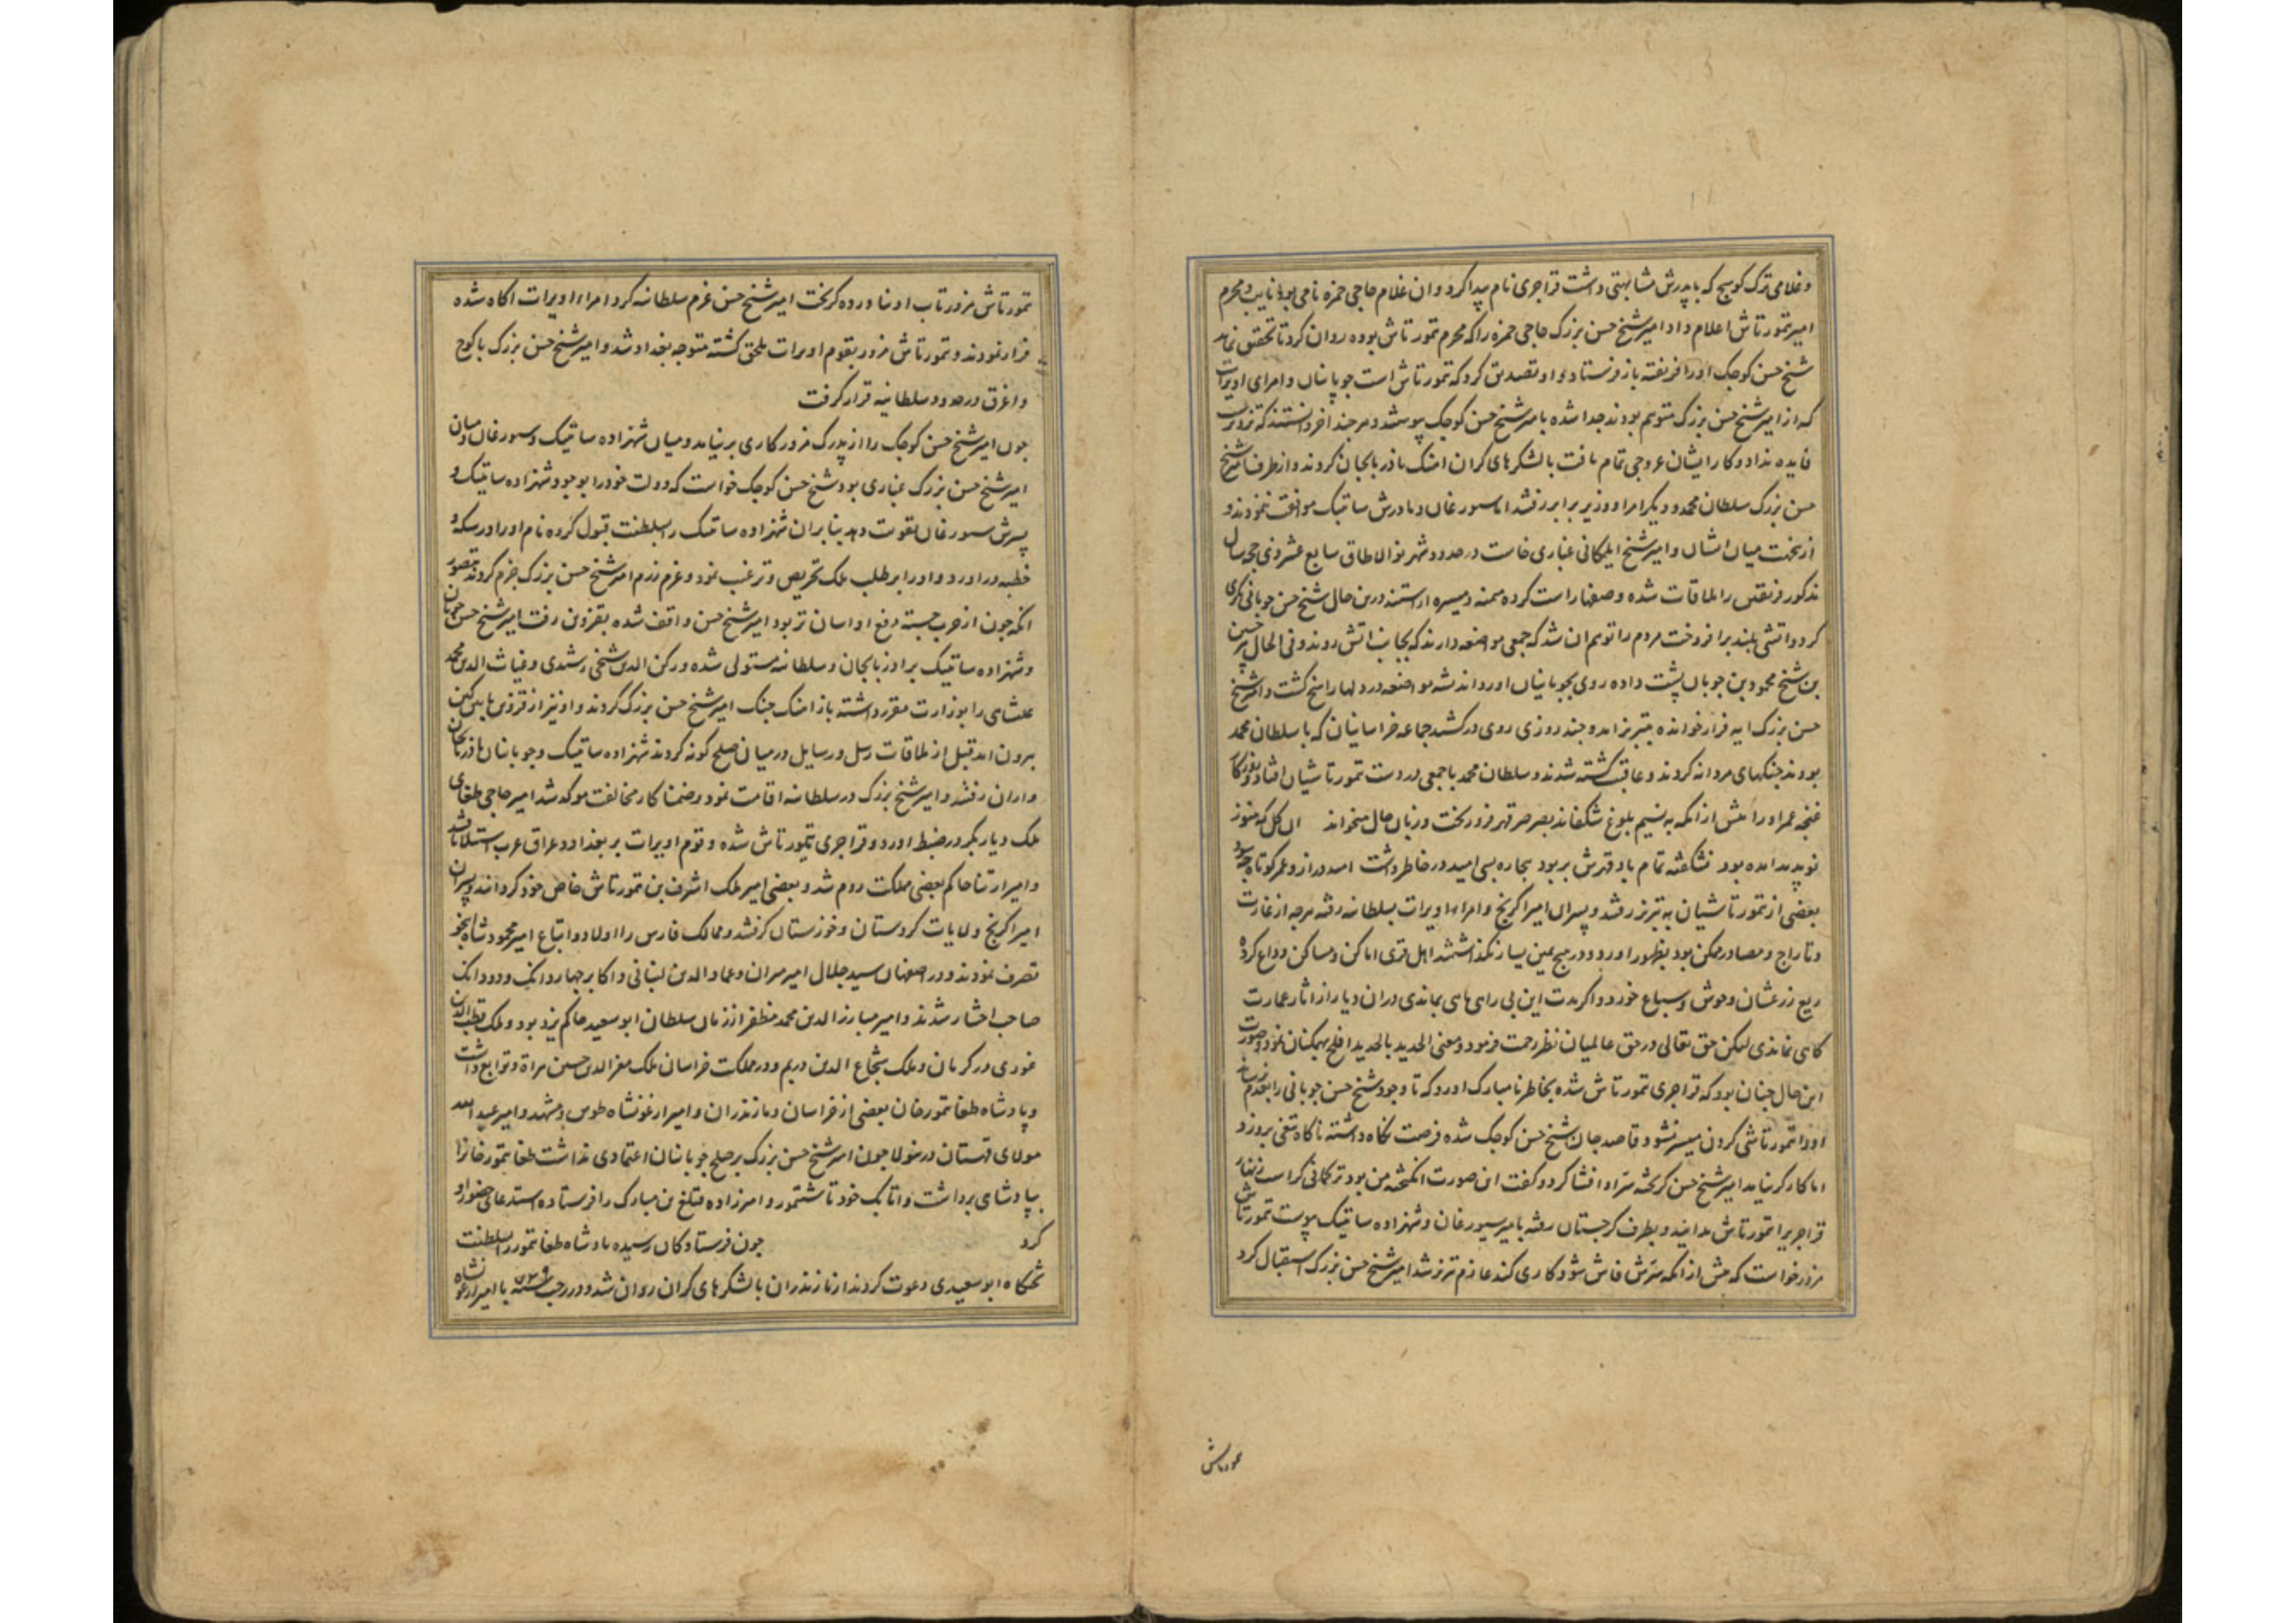 وغلامی ترک کوسج که با پدرش مشابهتی داشت قراجری نام پیدا کرد وان غلام حاجی حمزه نامی بود نایب و محرم
امیر تمورتاش اعلام داد امیر شیخ حسن بزرک حاجی حمزه را که محرم تمورتاش بوده روان کرد تا تحقیق نماید
شیخ حسن کوجک اورا فریفته باز فرستاد و او تصدیق کرد که تمورتاش است جوپانیان وامرای اویرات
که از امیر شیخ حسن بزرک متوهم بودند جدا شده بامیر شیخ حسن کوجک پیوستند و هرجند اخر دانستند که تزویرست
فایده نداد و کار ایشان عروجی تمام یافت با لشکرهای کران اهنک اذربایجان کردند و از طرف امیر شیخ
حسن بزرک سلطان محمد و دیکر امرا و وزیر برابر رفتند اما سیورغان و مادرش ساتیبک موافقت ننمودند و
از تخت میان ایشان و امیر شیخ ایلکانی غباری خاست در حدود شهر نو الاطاق سابع عشر ذی حجه سال
مذکور فریقین را ملاقات شده وصفها راست کرده میمنه ومیسره اراستند درین حال شیخ حسن جوبانی مکری
کرد واتشی بلند برافروخت مردم را توهم ان شد که جمعی مواضعه دارند که بجانب اتش روند و فی الحال پیر حسین
بن شیخ محمود بن جوبان پشت داده روی بجوبانیان اورد واندیشه مواضعه در دلها راسخ کشت وامیر شیخ
حسن بزرک ایه فرار خوانده بتبریز امد وجند روزی روی درکشید جماعه خراسانیان که با سلطان محمد
بودند جنکهای مردانه کردند وعاقبت کشته شدند وسلطان محمد با جمعی در دست تمورتاشیان افتاد
غنجه عمر اورا پیش از انکه به نسیم بلوغ شکفاند بصرصر قهر فرو ریخت وزبان حال میخواند ان کل که هنوز
نو بدید امده بود نشکفته تمام باد قهرش بربود بیجاره بسی امید در خاطر داشت امید دراز وعمر کوتاه چه سود
بعضی از تمورتاشیان به تبریز رفتند وپسران امیر اکرنج وامراء اویرات بسلطانیه رفته هرجه از غارت
وتاراج ومصادر ممکن بود بظهور اورد و در هیج یمین یسار نکذاشتند اهل قری اماکن ومساکن وداع کرده
ریع زرعشان وحوش و سباع خورد واکر مدت این بی راهی بماندی دران دیار از اثار عمارت
کاهی نماندی لیکن حق تعالی در حق عالمیان نظر رحمت فرمود ومعنی الحدید بالحدید افلح همکنان نمود وصورت
این حال جنان بود که قراجری تمورتاش شده بخاطر نامبارک اورد که تا وجود شیخ حسن جوبانی را بعدم نرساند
اورا تمورتاشی کردن میسر نشود قاصد جان شیخ حسن کوجک شده فرصت نکاه داشته ناکاه تیغی برو زد
اما کارکر نیامد امیر شیخ حسن کریخته سر او افشا کرد و کفت این صورت انکیخته من بود ترکمانی کراست زنهار
قراجری را تمورتاش مدانید و بطرف کرجستان رفته بامیر سیورغان وشهزاده ساتیبک پیوست تمورتاش
مزور خواست که پیش از انکه سرش فاش شود کاری کند عازم تبریز شد امیر شیخ حسن بزرک استقبال کرد
تمورتاش
تمورتاش مزور تاب او نیاورده کریخت امیر شیخ حسن عزم سلطانیه کرد امراء اویرات اکاه شده
فرار نمودند وتمورتاش مزور بقوم اویرات ملحق کشته متوجه بغداد شد وامیر شیخ حسن بزرک با کوج
واغرق در حدود سلطانیه قرار کرفت
جون امیر شیخ حسن کوجک را از پدرک مزور کاری برنیامد و میان شهزاده ساتیبک وسیورغان ومیان
امیر شیخ حسن بزرک غباری بود شیخ حسن کوجک خواست که دولت خودرا بوجود شهزاده ساتیبک و
پسرش سیورغان تقویت دهد بنابران شهزاده ساتیبک را بسلطنت قبول کرده نام اورا در سکه و
خطبه دراورد واورا بر طلب ملک تحریص وترغیب نمود وعزم رزم امیر شیخ حسن بزرک جزم کردند بتصور
انکه جون از حرب جسته دفع او اسان تر بود امیر شیخ حسن واقف شده بقزوین رفت امیر شیخ حسن جوبان
وشهزاده ساتیبک بر اذربایجان وسلطانیه مستولی شده ورکن الدین شیخی رشیدی وغیاث الدین محمد
علیشاهی را بوزارت مقرر داشته باز اهنک جنک امیر شیخ حسن بزرک کردند واو نیز از قزوین
برون امد قبل از ملاقات رسل ورسایل در میان صلح کونه کردند شهزاده ساتیبک وجوبانیان باذربایجان
واران رفتند وامیر شیخ بزرک در سلطانیه اقامت نمود وضمنا کار مخالفت موکد شد امیر حاجی طغای
ملک دیاربکر در ضبط اورد وقراجری تمورتاش شده وقوم اویرات بر بغداد وعراق عرب استیلا یافتند
وامیر ارتنا حاکم بعضی مملکت روم شد و بعضی امیر ملک اشرف بن تمورتاش خاص خود کردانید و پسران
امیر اکرنج ولایات کردستان وخوزستان کرفتند وممالک فارس را اولاد واتباع امیر محمود شاه اینجو
تصرف نمودند ودر اصفهان سید جلال امیر میران وعماد الدین لنبانی واکابر جهاردانک ودودانک
صاحب اختیار شدند وامیر مبارز الدین محمد مظفر از زمان سلطان ابو سعید حاکم یزد بود وملک قطب الدین
غوری در کرمان وملک شجاع الدین در بم ودر مملکت خراسان ملک معز الدین حسین هراة وتوابع داشت
وپادشاه طغا تمور خان بعضی از خراسان ومازندران وامیر ارغونشاه طوس ومشهد وامیر عبد الله
مولای قهستان درین ولا جون امیر شیخ حسن بزرک بر صلح جوبانیان اعتمادی نداشت طغا تمور خانرا
بپادشاهی برداشت واتابک خود تاشتمور وامیرزاده قتلغ بن مبارک را فرستاده استدعای حضور او
کرد جون فرستادکان رسیده پادشاه طغا تمور را بسلطنت
تختکاه ابو سعیدی دعوت کردند از مازندران با لشکرهای کران روان شد ودر رجب سنه ۷۳۹ با امیر ارغونشاه